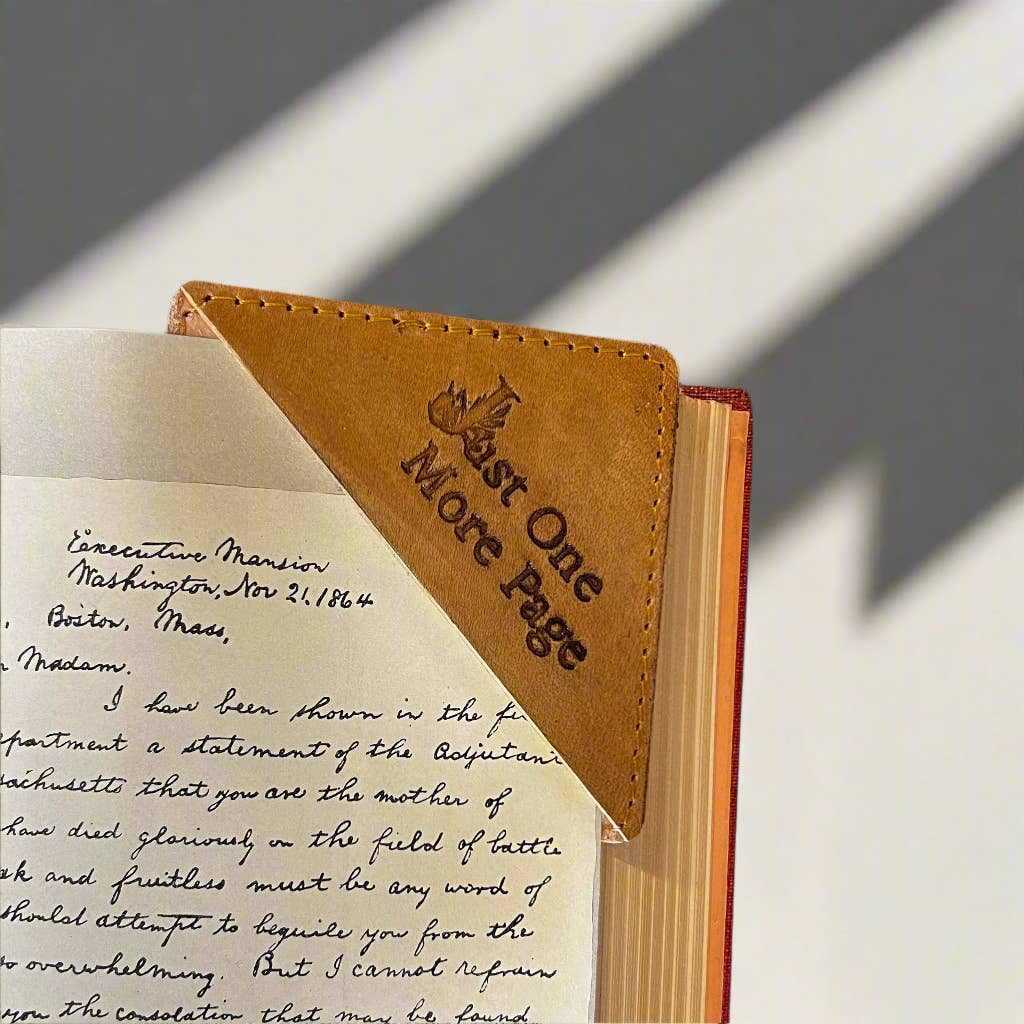 Just One
More Page
Executive Mansion
Washington, Nov 21, 1864
, Boston, Mass,
Madam.
I have been shown in the
partment a statement of the Adjutant
sachusetts that you are the mother of
have died gloriously on the field of battle
ak and fruitless must be any word of
should attempt to beguile you from the
so overwhelming. But I cannot refrain
you the consolation that may be found